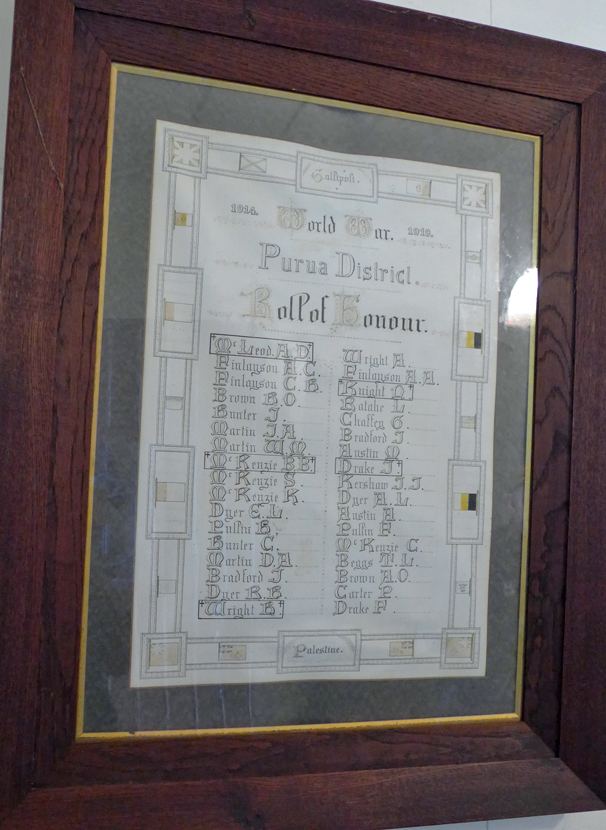 Gallipoli.
1914. World War. 1919.
Purua District.
Roll of Honour.
Mc Leod. A. D.
Finlayson A. C.
Finlayson C. H.
Brown H. O.
Hunter J.
Martin J. A.
Martin W. M.
Mc Kenzie
Mc Kenzie S.
Mc Kenzie K.
Dyer E. L.
Hunter C.
Martin D. A.
Bradford J.
Dyer
Wright H.
Wright A.
Finlayson A. A.
Knight
L.
Chaffey G.
Bradford J.
Austin M.
Drake J.
Kershaw J. J.
Dyer A. L.
Austin A.
Mc Kenzie C.
Beggs T. L.
Brown A. O.
Carter P.
Drake F.
Palestine.